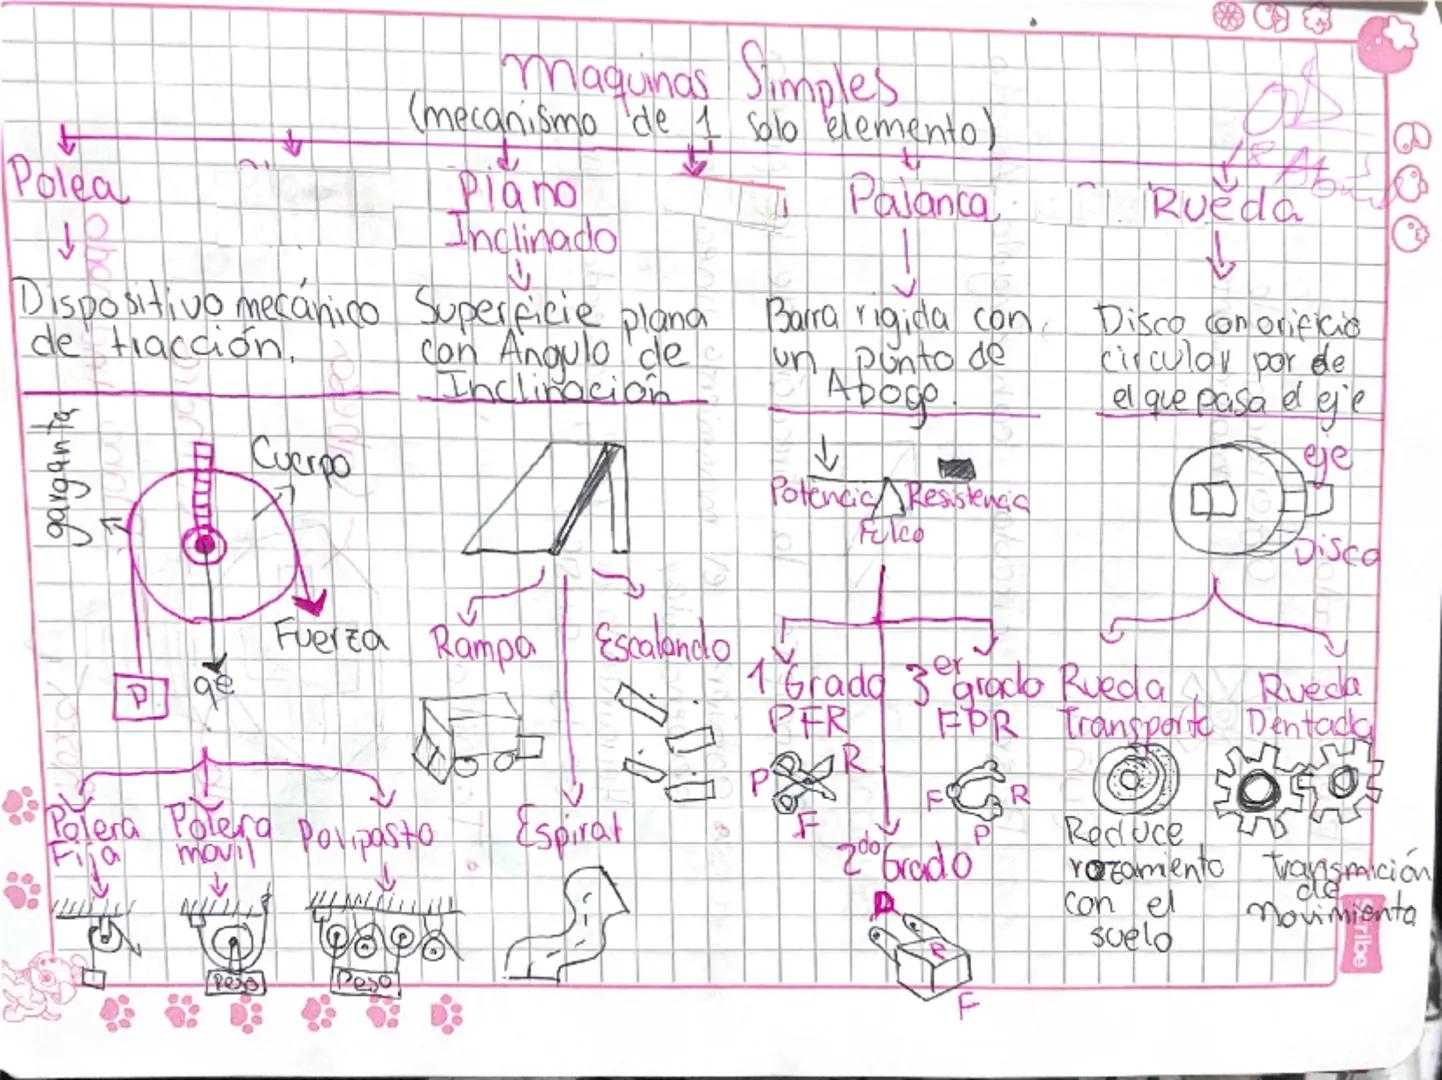 Maquinas Simples
(mecanismo de 1 solo elemento)
Polea
Plano
Inclinado
Palanca
Rueda
Dispositivo mecánico
de tracción.
Superficie plana
con Angulo de
Inclinación
Barra rigida con
un punto de
Apogo.
Disco con orificio
circular por de
el que pasa el eje
garganta
Cuerpo
Fuerza
P
Potencia
Resistencia
Fulco
eje
Disco
Rampa
Escalando
Espiral
1 Grado
PFR
3er grado
FPR
P
R
F
F
R
P
2do Grado
R
F
Rueda
Transporte
Rueda
Dentada
Reduce
rozamiento
con el
suelo
Transmición
de
movimiento
Polera
Fija
Polera
movil
Polipasto
Peso
Peso
Scribe